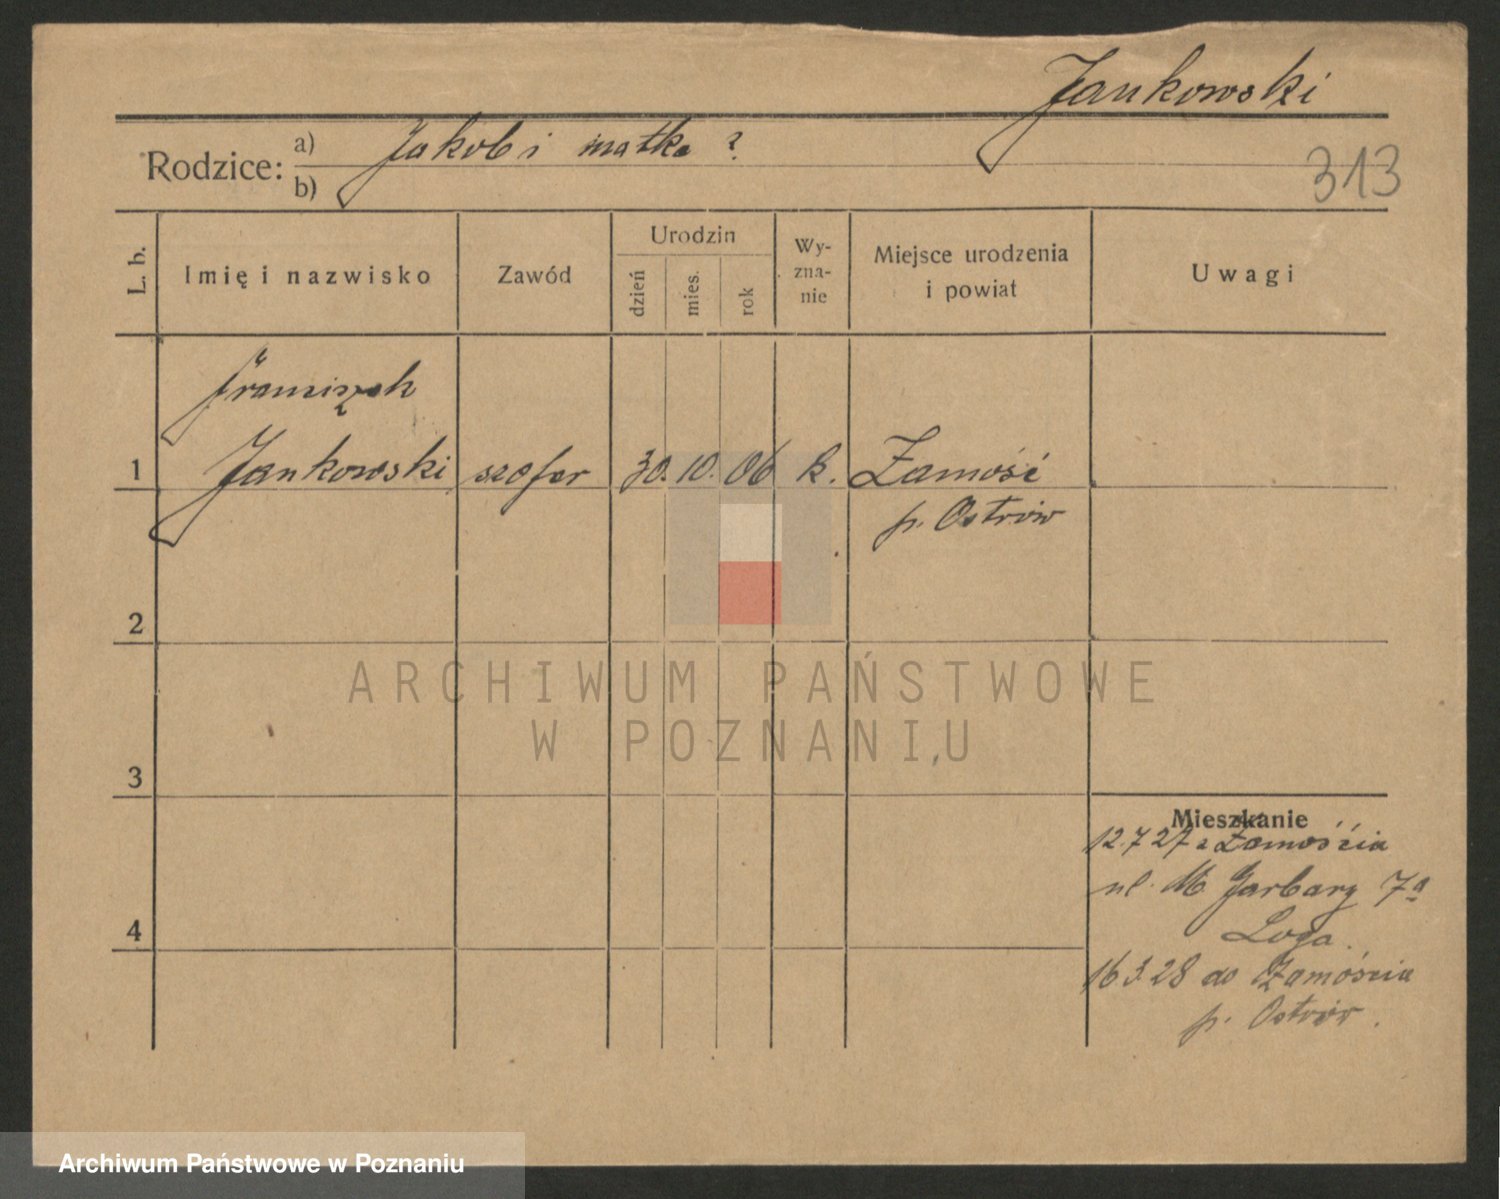 Jankowski
Rodzice: a) Jakob i matka ?
b)
313
L. b.
Imię i nazwisko
Zawód
Urodzin
dzień
mies.
rok
Wy-
zna-
nie
Miejsce urodzenia
i powiat
Uwagi
Franciszek
1 Jankowski szofer 30. 10. 06 k. Zamość
p. Ostrów
2
ARCHIWUM PAŃSTWOWE
W POZNANIU
3
Mieszkanie
12.7 27 z Zamościa
ul. M Garbary 7a
4
Loga.
16 3.28 do Zamościa
p. Ostrów.
Archiwum Państwowe w Poznaniu